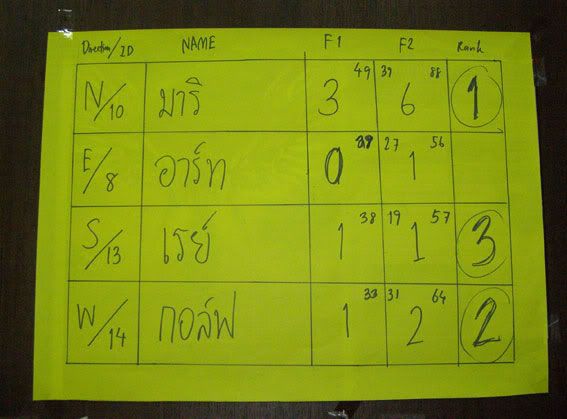 Direction/ID NAME F1 F2 Rank
N/10 มาริ 3 49 39 6 88 1
E/8 อาร์ท 0 29 27 1 56
S/13 เรย์ 1 38 19 1 57 3
W/14 กอล์ฟ 1 33 31 2 64 2